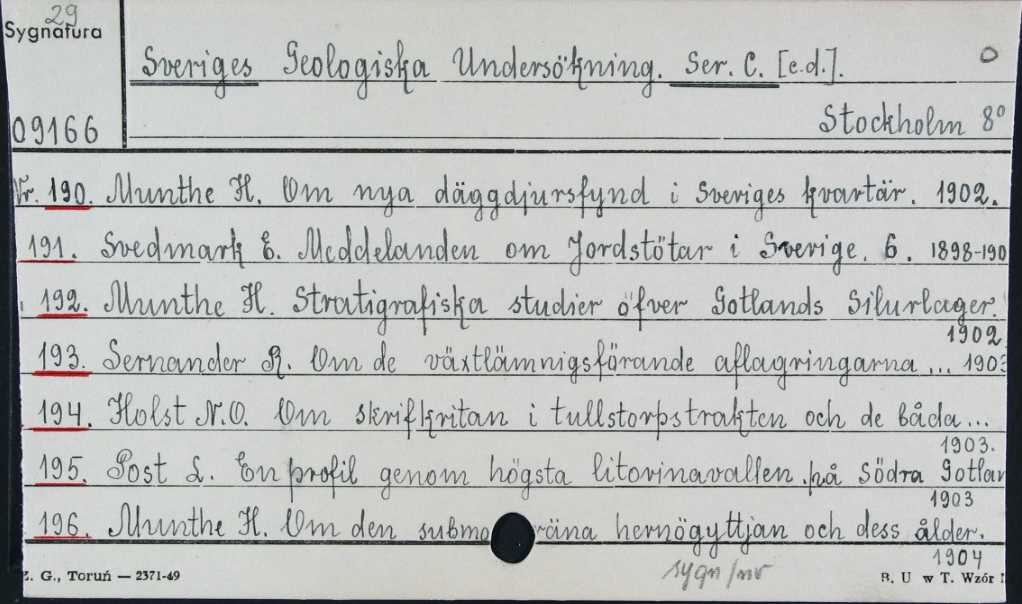 29
Sygnatura
Sveriges Geologiska Undersökning. Ser. C. [e.d.]. 0
09166
Stockholm 8°
Nr. 190. Munthe H. Om nya däggdjursfynd i Sveriges kvartär. 1902.
191. Svedmark E. Meddelanden om Jordstötar i Sverige. 6. 1898-190
192. Munthe H. Stratigrafiska studier öfver Gotlands Silurlager.
1902
193. Sernander R. Om de växtlämnigsförande aflagringarna ... 1903
194. Holst N.O. Om skrifkritan i tullstorpstrakten och de båda...
1903.
195. Post L. En profil genom högsta litorinavallen på Södra Gotlan
1903
196. Munthe H. Om den submo räna hernögyttjan och dess ålder.
1904
Z. G., Toruń — 2371-49
sygn/nr
B. U w T. Wzór